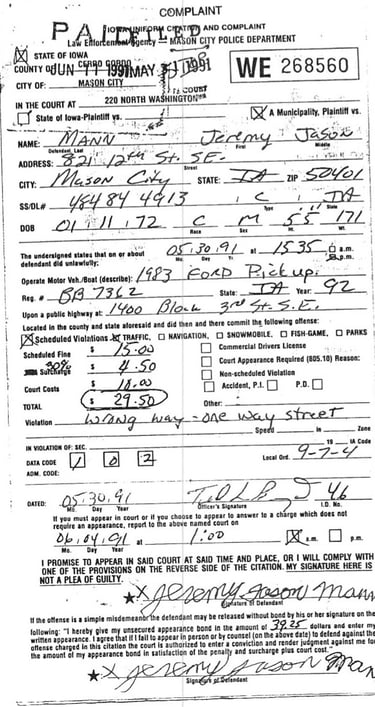 COMPLAINT
PAID FILED
IOWA UNIFORM CITATION AND COMPLAINT
Law Enforcement Agency — MASON CITY POLICE DEPARTMENT
☒ STATE OF IOWA
COUNTY OF CERRO GORDO
JUN 11 1991 MAY 31 1991
WE 268560
CITY OF: MASON CITY
IN THE COURT AT 220 NORTH WASHINGTON
☐ State of Iowa-Plaintiff vs. ☒ A Municipality, Plaintiff vs.
NAME: MANN Jeremy Jason
Defendant, Last First Middle
ADDRESS: 821 12th St. SE.
Street
CITY: Mason City STATE: IA ZIP 50401
SS/DL# 484 84 4913 C IA
Type State
DOB 01 11 72 C M 55 171
Mo. Day Year Race Sex Ht. Wt.
The undersigned states that on or about 05.30.91 at 1535 ☐ a.m. ☒ p.m.
defendant did unlawfully: Mo. Day Year
Operate Motor Veh./Boat (describe): 1983 FORD Pickup.
Reg. # BB 7362 State: IA Year: 92
Upon a public highway at: 1400 Block 3rd St. S.E.
Located in the county and state aforesaid and did then and there commit the following offense:
☒ Scheduled Violations ☒ TRAFFIC, ☐ NAVIGATION, ☐ SNOWMOBILE, ☐ FISH-GAME, ☐ PARKS
Scheduled Fine $ 15.00 ☐ Commercial Drivers License
30% Surcharge $ 4.50 ☐ Court Appearance Required (805.10) Reason:
☐ Non-scheduled Violation
Court Costs $ 10.00 ☐ Accident, P.I. ☐ P.D. ☐
TOTAL $ 29.50 Other:
Violation wrong way - one way street
Speed in Zone
IN VIOLATION OF: SEC. 19 IA Code
DATA CODE 1 0 2 Local Ord. 9-7-4
ADM. CODE:
DATED: 05.30.91 46
Mo. Day Year Officer's Signature I.D. No.
If you must appear in court or if you choose to appear to answer to a charge which does not
require an appearance, report to the above named court on
06.04.91 at 1:00 ☒ a.m. ☐ p.m.
Mo. Day Year
I PROMISE TO APPEAR IN SAID COURT AT SAID TIME AND PLACE, OR I WILL COMPLY WITH
ONE OF THE PROVISIONS ON THE REVERSE SIDE OF THE CITATION. MY SIGNATURE HERE IS
NOT A PLEA OF GUILTY.
★X Jeremy Jason Mann
Signature of Defendant
If the offense is a simple misdemeanor the defendant may be released without bond by his or her signature on the
following: "I hereby give my unsecured appearance bond in the amount of 39.25 dollars and enter my
written appearance. I agree that if I fail to appear in person or by counsel (on the above date) to defend against the
offense charged in this citation the court is authorized to enter a conviction and render judgment against me for
the amount of my appearance bond in satisfaction of the penalty and surcharge plus court cost."
★X Jeremy Jason Man
Signature of Defendant